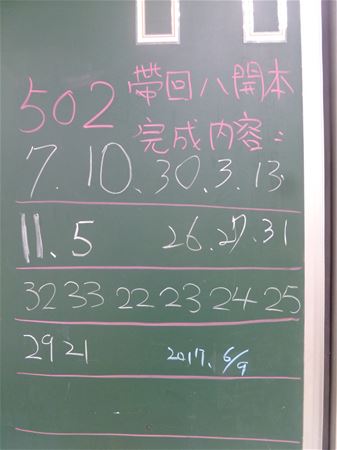 502 帶回八開本
完成內容:
7.10.30.3.13
11.5 26.27.31
32 33 22 23 24 25
29 21 2017.6/9